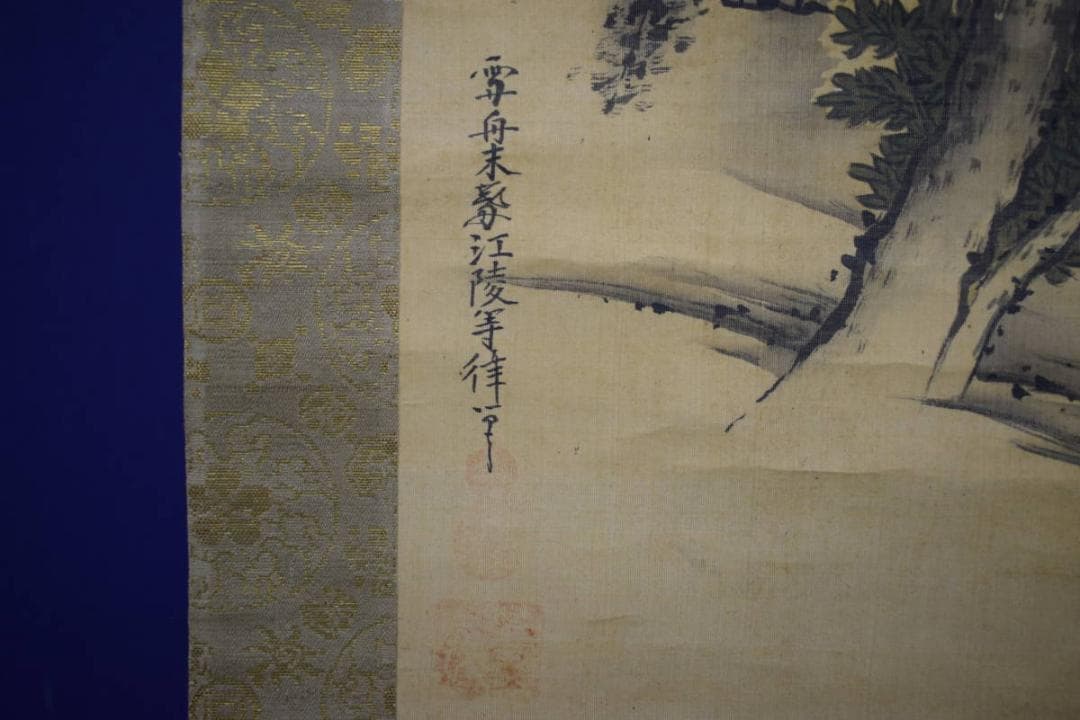 雪舟末裔江陵等律筆